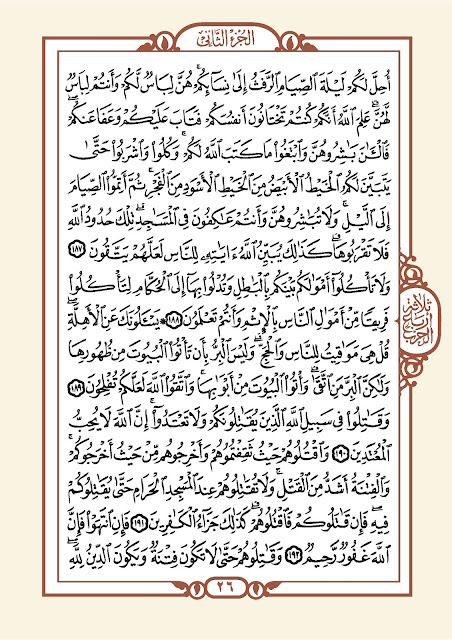 الجُزْءُ الثَّانِي
أُحِلَّ لَكُمْ لَيْلَةَ ٱلصِّيَامِ ٱلرَّفَثُ إِلَىٰ نِسَآئِكُمْ ۚ هُنَّ لِبَاسٌ لَّكُمْ وَأَنتُمْ لِبَاسٌ
لَّهُنَّ ۗ عَلِمَ ٱللَّهُ أَنَّكُمْ كُنتُمْ تَخْتَانُونَ أَنفُسَكُمْ فَتَابَ عَلَيْكُمْ وَعَفَا عَنكُمْ ۖ
فَٱلْـَٰٔنَ بَـٰشِرُوهُنَّ وَٱبْتَغُوا۟ مَا كَتَبَ ٱللَّهُ لَكُمْ ۚ وَكُلُوا۟ وَٱشْرَبُوا۟ حَتَّىٰ
يَتَبَيَّنَ لَكُمُ ٱلْخَيْطُ ٱلْأَبْيَضُ مِنَ ٱلْخَيْطِ ٱلْأَسْوَدِ مِنَ ٱلْفَجْرِ ۖ ثُمَّ أَتِمُّوا۟ ٱلصِّيَامَ
إِلَى ٱلَّيْلِ ۚ وَلَا تُبَـٰشِرُوهُنَّ وَأَنتُمْ عَـٰكِفُونَ فِى ٱلْمَسَـٰجِدِ ۗ تِلْكَ حُدُودُ ٱللَّهِ
فَلَا تَقْرَبُوهَا ۗ كَذَٰلِكَ يُبَيِّنُ ٱللَّهُ ءَايَـٰتِهِۦ لِلنَّاسِ لَعَلَّهُمْ يَتَّقُونَ ١٨٧
وَلَا تَأْكُلُوٓا۟ أَمْوَٰلَكُم بَيْنَكُم بِٱلْبَـٰطِلِ وَتُدْلُوا۟ بِهَآ إِلَى ٱلْحُكَّامِ لِتَأْكُلُوا۟
فَرِيقًا مِّنْ أَمْوَٰلِ ٱلنَّاسِ بِٱلْإِثْمِ وَأَنتُمْ تَعْلَمُونَ ١٨٨ ۞ يَسْـَٔلُونَكَ عَنِ ٱلْأَهِلَّةِ ۖ
قُلْ هِىَ مَوَٰقِيتُ لِلنَّاسِ وَٱلْحَجِّ ۗ وَلَيْسَ ٱلْبِرُّ بِأَن تَأْتُوا۟ ٱلْبُيُوتَ مِن ظُهُورِهَا
وَلَـٰكِنَّ ٱلْبِرَّ مَنِ ٱتَّقَىٰ ۗ وَأْتُوا۟ ٱلْبُيُوتَ مِنْ أَبْوَٰبِهَا ۚ وَٱتَّقُوا۟ ٱللَّهَ لَعَلَّكُمْ تُفْلِحُونَ ١٨٩
وَقَـٰتِلُوا۟ فِى سَبِيلِ ٱللَّهِ ٱلَّذِينَ يُقَـٰتِلُونَكُمْ وَلَا تَعْتَدُوٓا۟ ۚ إِنَّ ٱللَّهَ لَا يُحِبُّ
ٱلْمُعْتَدِينَ ١٩٠ وَٱقْتُلُوهُمْ حَيْثُ ثَقِفْتُمُوهُمْ وَأَخْرِجُوهُم مِّنْ حَيْثُ أَخْرَجُوكُمْ ۚ
وَٱلْفِتْنَةُ أَشَدُّ مِنَ ٱلْقَتْلِ ۚ وَلَا تُقَـٰتِلُوهُمْ عِندَ ٱلْمَسْجِدِ ٱلْحَرَامِ حَتَّىٰ يُقَـٰتِلُوكُمْ
فِيهِ ۖ فَإِن قَـٰتَلُوكُمْ فَٱقْتُلُوهُمْ ۗ كَذَٰلِكَ جَزَآءُ ٱلْكَـٰفِرِينَ ١٩١ فَإِنِ ٱنتَهَوْا۟ فَإِنَّ
ٱللَّهَ غَفُورٌ رَّحِيمٌ ١٩٢ وَقَـٰتِلُوهُمْ حَتَّىٰ لَا تَكُونَ فِتْنَةٌ وَيَكُونَ ٱلدِّينُ لِلَّهِ ۖ
ثلاثة
أرباع
الحزب
٢٦